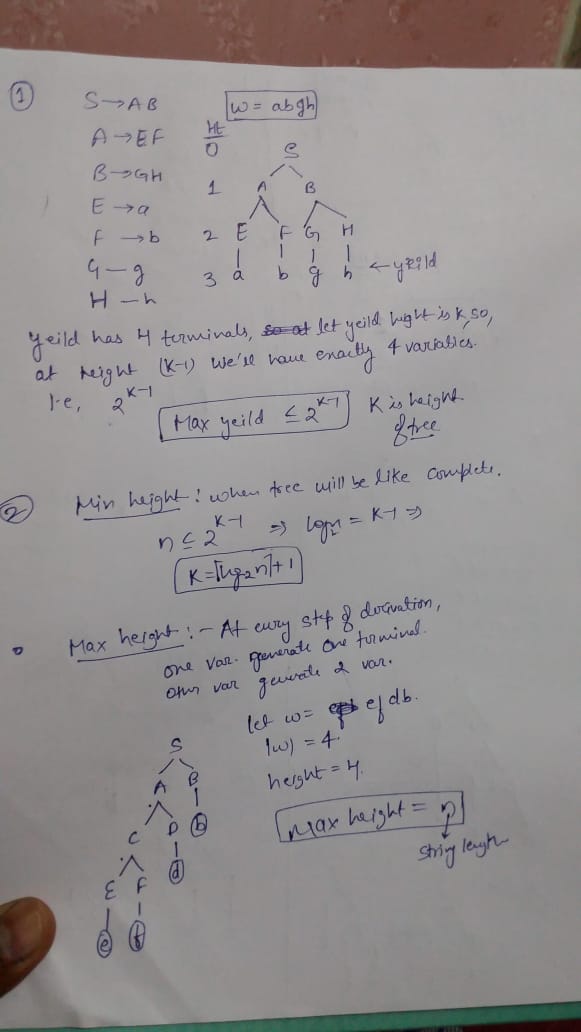 ①
S→AB
w = abgh
A→EF
Ht
0
S
B→GH
1 A B
E→a
F→b
2 E F G H
G—g
3 a b g h ← yeild
H—h
Yeild has 4 terminals, let yeild hight is K, so,
at height (K-1) we'll have exactly 4 variables.
I-e, 2^{K-1}
Max yeild ≤ 2^{K-1}
K is height
of tree
②
Min height: when tree will be like complete.
n ≤ 2^{K-1} ⇒ log₂n = K-1 ⇒
K = ⌈log₂n⌉+1
Max height :- At every step of derivation,
one var. generate one terminal.
other var generate 2 var.
let w = efdb.
|w| = 4.
height = 4.
Max height = n
string length
S
A B
C D b
E F d
e f